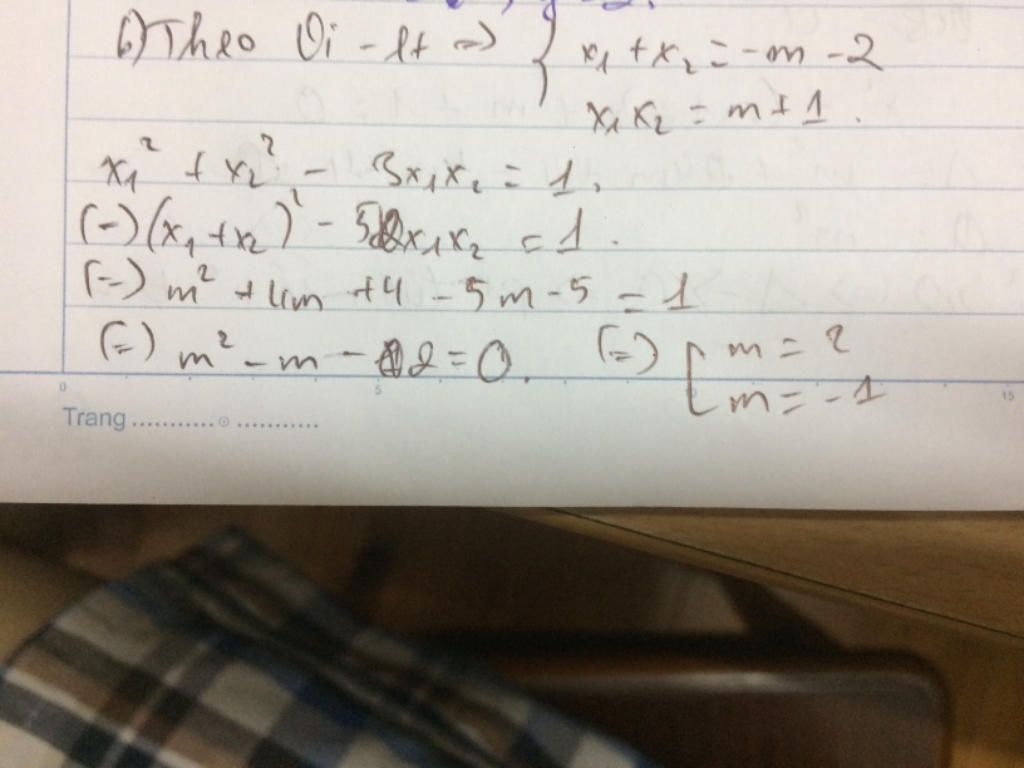 b) Theo Vi-ét => { x₁ + x₂ = -m - 2
x₁x₂ = m + 1.
x₁² + x₂² - 3x₁x₂ = 1.
(=) (x₁ + x₂)² - 5x₁x₂ = 1.
(=) m² + 4m + 4 - 5m - 5 = 1
(=) m² - m - 2 = 0. (=) [ m = 2
m = -1
0 5 15
Trang ...........⊙ ............